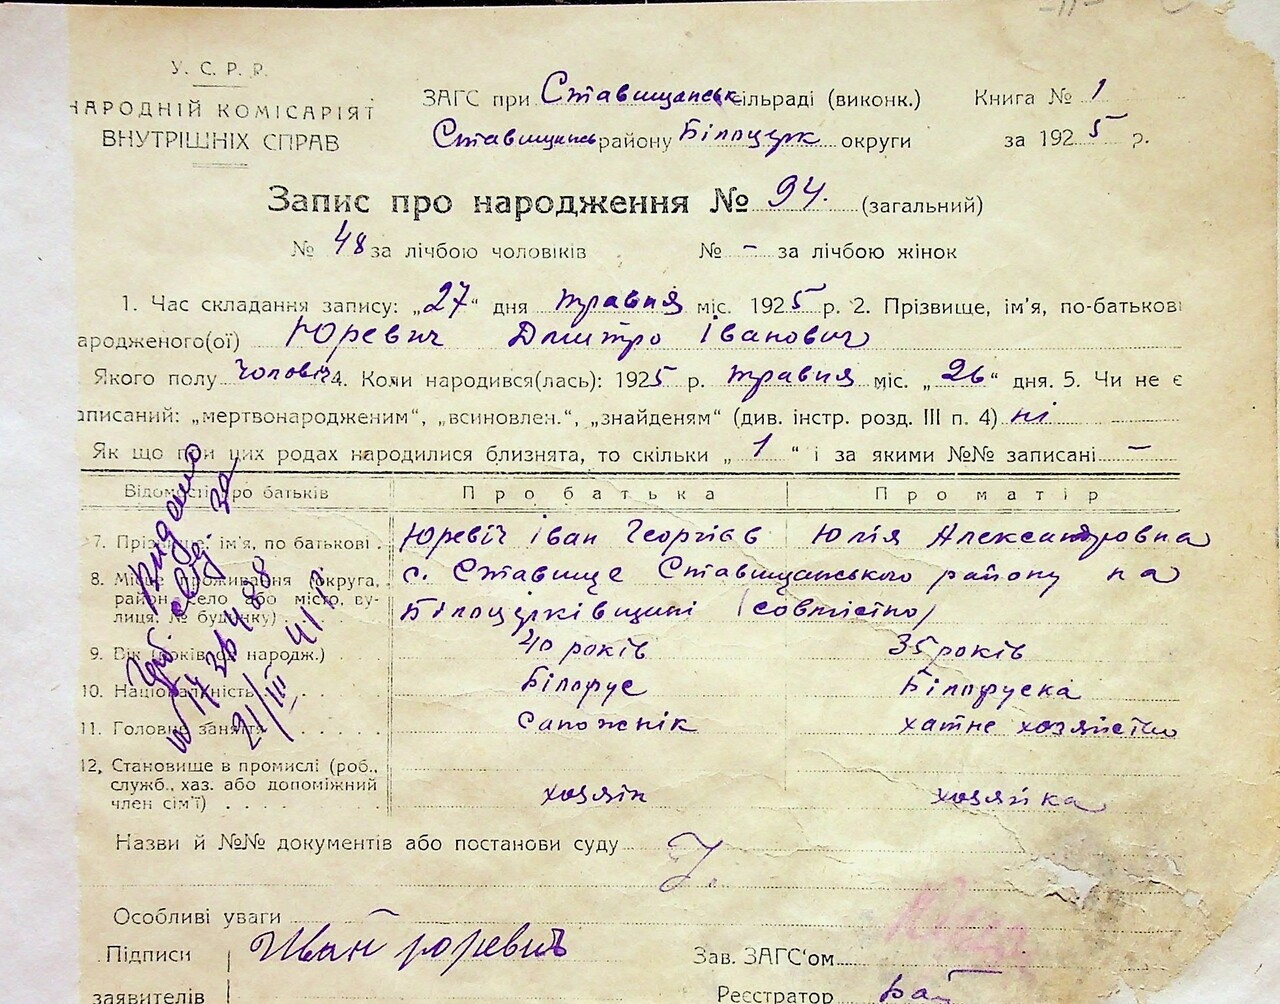 У. С. Р. Р.
НАРОДНІЙ КОМІСАРІЯТ
ВНУТРІШНІХ СПРАВ
ЗАГС при Ставищанськ сільраді (виконк.) Книга № 1
Ставищансь району Білоцерк округи за 1925 р.
Запис про народження № 94. (загальний)
№ 48 за лічбою чоловіків № - за лічбою жінок
1. Час складання запису: „27“ дня травня міс. 1925 р. 2. Прізвище, ім'я, по-батькові
ародженого(ої) Юревич Дмитро Іванович
Якого полу чоловіч 4. Коли народився(лась): 1925 р. травня міс. „26“ дня. 5. Чи не є
аписаний: „мертвонародженим“, „всиновлен.“, „знайденям“ (див. інстр. розд. III п. 4) ні
Як що при цих родах народилися близнята, то скільки „1“ і за якими №№ записані -
Відомості про батьків Про батька Про матір
7. Прізвище, ім'я, по батькові . Юревіч Іван Георгієв Юлія Александровна
8. Місце проживання (округа, с. Ставище Ставищанського району на
район, село або місто, ву-
лиця, № будинку) . Білоцерківщині (совмістно)
9. Вік (років народж.) . 40 років 35 років
10. Національність . . . Білорус Білоруска
11. Головне заняття . . . . сапожнік хатне хозяйство
12. Становище в промислі (роб.,
служб., хаз. або допоміжний
член сім'ї) . . . . хозяін хозяйка
Видано
за
21/III 41 р.
Назви й №№ документів або постанови суду
Особливі уваги
Підписи Іван Юревич Зав. ЗАГС'ом
заявителів Реєстратор